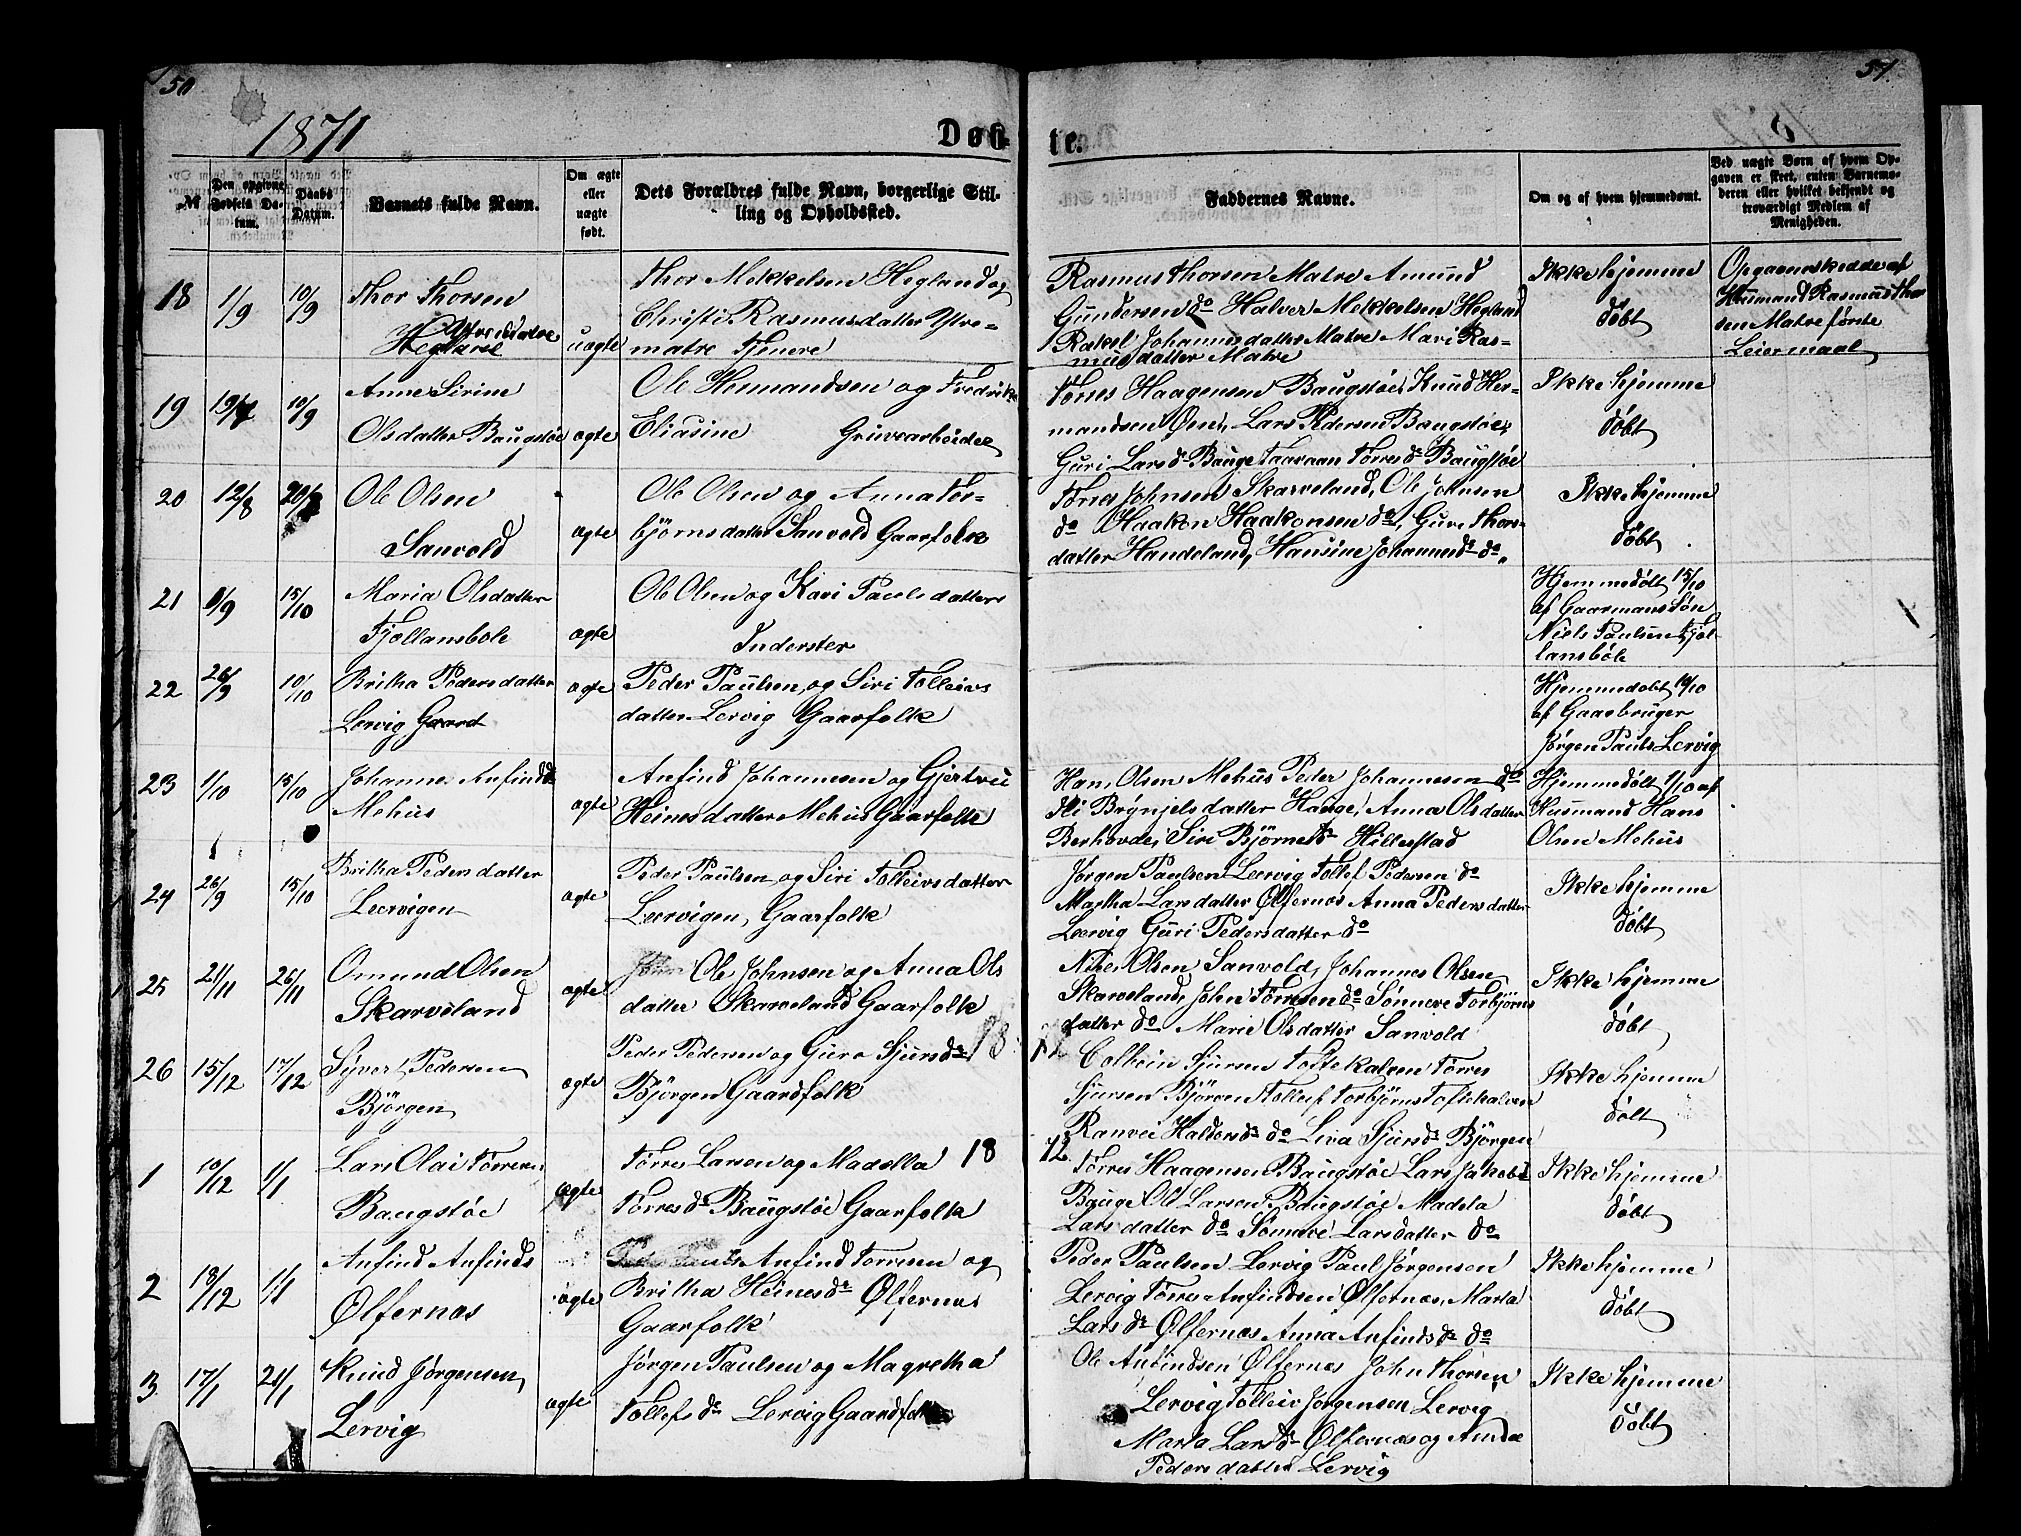 50
51
1871
Døb-
te.
№
Den opgivne
Fødsels Da-
tum.
Daabs
Datum.
Barnets fulde Navn.
Om ægte
eller
uægte
født.
Dets Forældres fulde Navn, borgerlige Stil-
ling og Opholdssted.
Faddernes Navne.
Om og af hvem hjemmedømt.
Ved uægte Børn af hvem Op-
gaven er skeet, enten Barnemo-
deren eller hvilket bekjendt og
troværdigt Medlem af
Menigheden.
18 1/9 10/9
Thor Thorsen
Ytrematre
Hegland
uægte
Thor Mekkelsen Hegland og
Christi Rasmusdatter Ytre-
matre Tjenere
Rasmus Thorsen Matre Amund
Gundersen do Halver Mekkelsen Hegland
Rakel Johannesdatter Matre Mari Ras-
musdatter Matre
Ikke hjemme
døbt
Opgaven skedde af
Husmand Rasmus Thor
sen Matre første
Leiermaal
19 19/7 10/9
Anne Sirine
Olsdatter Baugstøe
ægte
Ole Hermandsen og Fredrikke
Eliasine Gruvearbeider
Tørres Haagensen Baugstøe, Knud Her-
mandsen Øen, Lars Pedersen Baugstøe,
Guri Larsdr Bauge Taaraan Tørresdr Baugstøe
Ikke hjemme
døbt
20 12/8
Ole Olsen
Sanvold
ægte
Ole Olsen og Anna Tor-
bjørnsdatter Sanvold Gaarfolk
Tørres Johnsen Skarveland, Ole Johnsen
do Haakon Haakonsen do, Guri Thors-
datter Handeland, Hansine Johannesdr do
Ikke hjemme
døbt
21 8/9 15/10
Maria Olsdatter
Fjellansbole
ægte
Ole Olsen og Kari Paulsdatter
Inderster
Hjemmedøbt 15/10
af Gaarmans Søn
Niels Paulsen Fjel
lansbøle
22 26/9 10/10
Britha Pedersdatter
Lervig Gaard
ægte
Peder Paulsen og Siri Tolleivs
datter Lervig Gaarfolk
Hjemmedøbt 10/10
af Gaarbruger
Jørgen Pauls Lervig
23 1/10 15/10
Johanne Anfindsdr
Mehus
ægte
Anfind Johannesen og Gjertrui
Heinesdatter Mehus Gaarfolk
Hans Olsen Mehus Peder Johannesen do
Eli Brynjelsdatter Hauge, Anna Olsdatter
Berhovde, Siri Bjørnsdr Hillestad
Hjemmedøbt 1/10 af
Husmand Hans
Olsen Mehus
24 26/9 15/10
Britha Pedersdatter
Leervigen
ægte
Peder Paulsen og Siri Tolleivsdatter
Leervigen, Gaarfolk
Jørgen Paulsen Lervig Tollef Pedersen do
Martha Larsdatter Ølfernæs Anna Pedersdatter
Leervig Guri Pedersdatter do
Ikke hjemme
døbt
25 21/11 26/11
Omund Olsen
Skarveland
ægte
Ole Johnsen og Anna Ols
datter Skarveland Gaarfolk
Niels Olsen Sanvold, Johannes Olsen
Skarveland, John Tørresen do Sønneve Torbjørns
datter do Marie Olsdatter Sanvold
Ikke hjemme
døbt
18 72
26 15/12 17/12
Syvert Pedersen
Bjørgen
ægte
Peder Pedersen og Guro Sjursdr
Bjørgen Gaardfolk
Colbein Sjursen Toftekalven Tørres
Sjursen Bjørgen Tollef Torbjørns Toftekalven
Ranvei Haldorsdr do Liva Sjursdr Bjørgen
Ikke hjemme
døbt
18 72
1 10/12 1/1
Lars Olai Tørresen
Baugstøe
ægte
Tørres Larsen og Madella
Tørresdr Baugstøe Gaarfolk
Tørres Haagensen Baugstøe Lars Jakobs
Bauge Ole Larsen Baugstøe Madela
Larsdatter do Sønneve Larsdatter do
Ikke hjemme
døbt
2 18/12 1/1
Anfind Anfinds
Ølfernæs
ægte
Anfind Torresen og
Britha Heinesdr Ølfernæs
Gaarfolk
Peder Paulsen Lervig Paul Jørgensen
Lervig Tørres Anfindsen Ølfernæs, Marta
Larsdr Ølfernæs Anna Anfindsdr do
Ikke hjemme
døbt
3 17/1 21/1
Knud Jørgensen
Lervig
ægte
Jørgen Paulsen og Magretha
Tollefsdr Lervig Gaardfolk
Ole Anfindsen Ølfernæs John Thorsen
Lervig Tolleiv Jørgensen Lervig
Marta Larsdr Ølfernæs og
Pedersdatter Lervig
Ikke hjemme
døbt